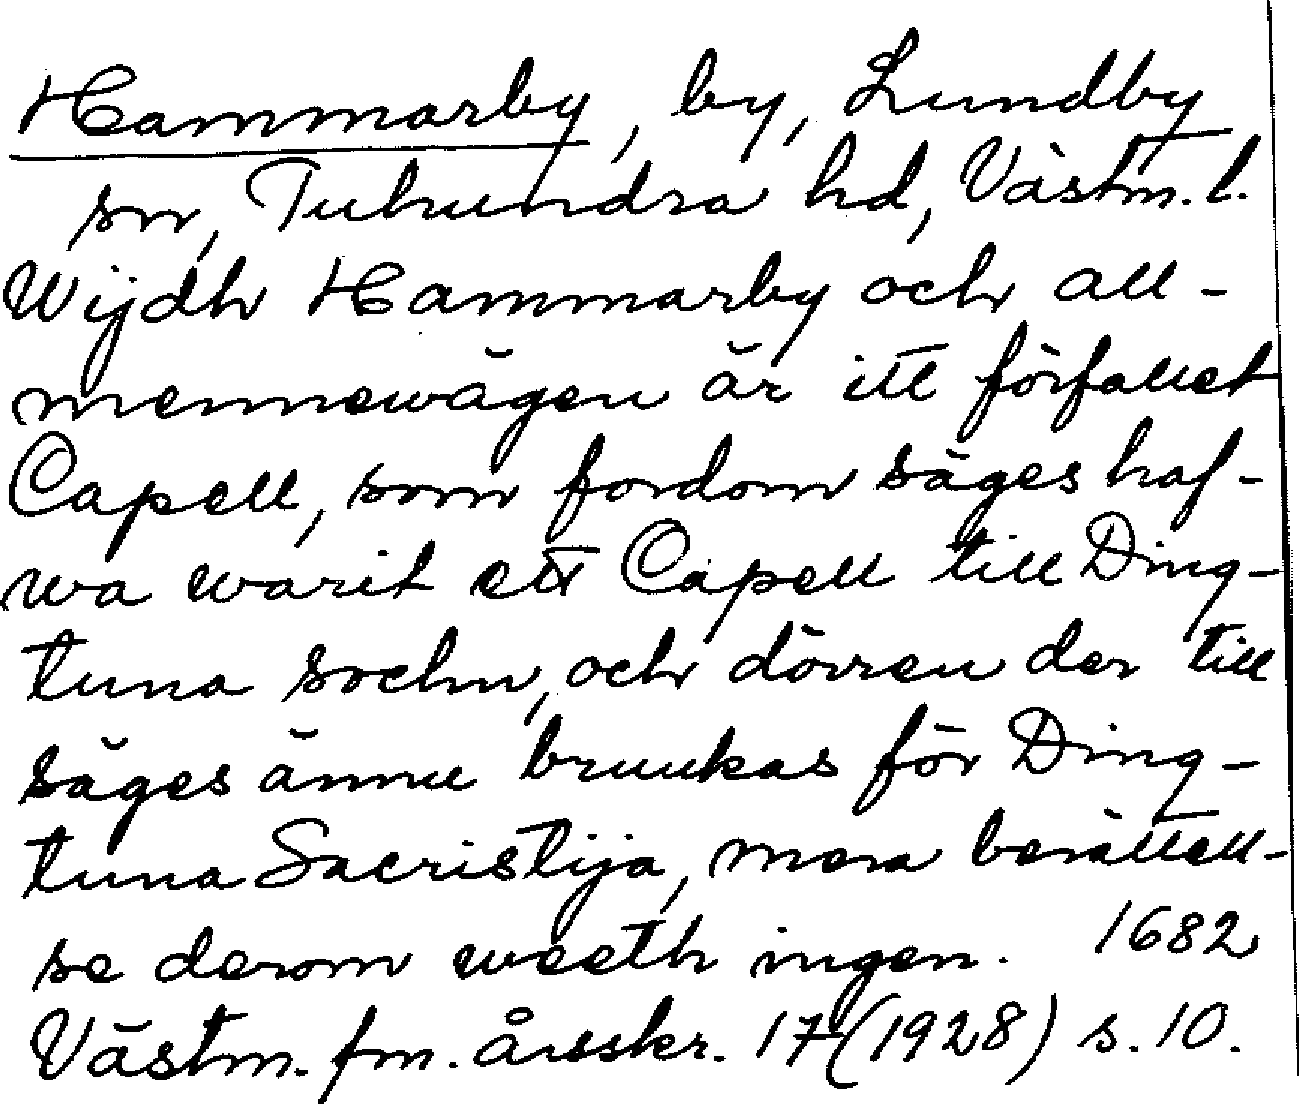 Hammarby, by, Lundby
sn, Tuhundra hd, Västm. l.
Wijdh Hammarby och all-
mennewägen är itt förfallet
Capell, som fordom säges haf-
wa warit ett Capell till Ding-
tuna sochn, och dörren der till
säges ännu bruukas för Ding-
tuna Sacristija, mera berättell-
se derom weeth ingen. 1682
Västm. fm. årsskr. 17 (1928) s. 10.